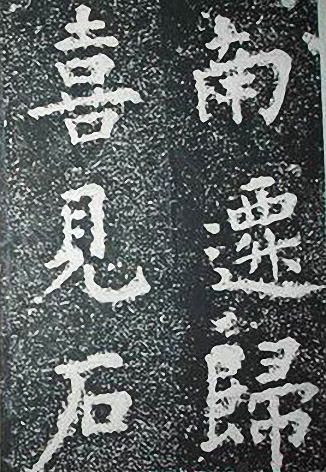 南遷歸
喜見石